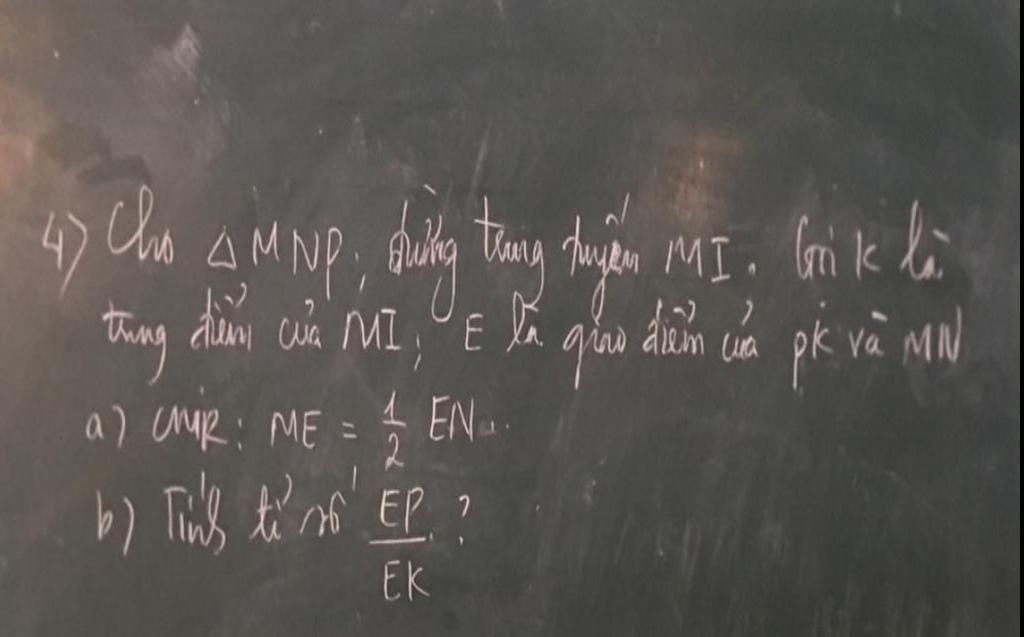 4) Cho △MNP; đường trung tuyến MI. Gọi K là
trung điểm của MI; E là giao điểm của PK và MN
a) CMR: ME = 1/2 EN.
b) Tính tỉ số EP/EK ?